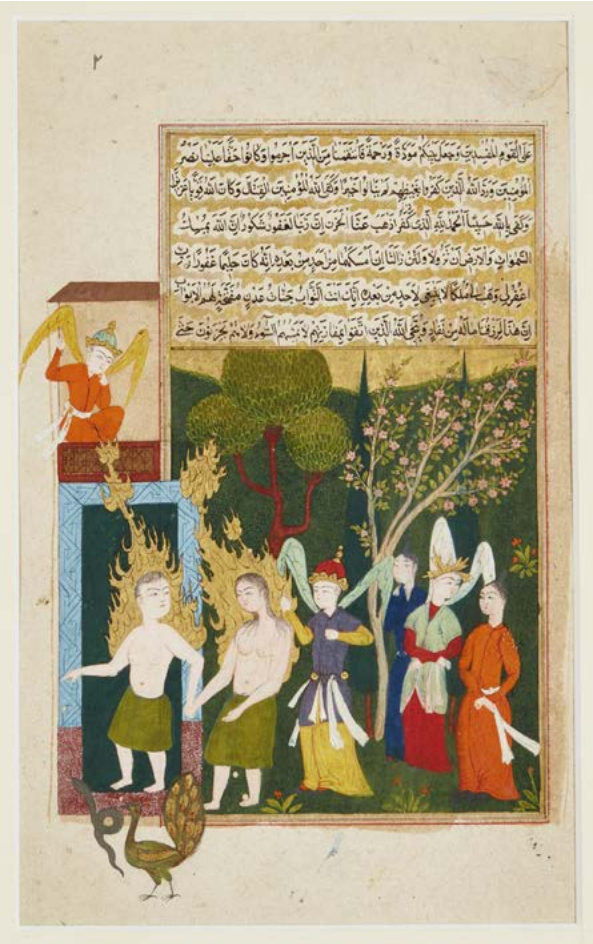 ٢
على القوم المفسدين وجعل بينكم مودة ورحمة فانتقمنا من الذين اجرموا وكانوا حقا علينا نصر
المؤمنين ورد الله الذين كفروا بغيظهم لم ينالوا خيرا وكفى الله المؤمنين القتال وكان الله قويا عزيزا
وكفى بالله حسيبا الحمد لله اذهب عنا الحزن ان ربنا لغفور شكور ان الله يمسك
السموات والارض ان تزولا ولئن زالتا ان امسكهما من احد من بعده انه كان حليما غفورا رب
اغفر لي وهب لي ملكا لا ينبغي لاحد من بعدي انك انت جنات عدن مفتحة لهم الابواب
ان هذا لرزقنا ما له من نفاد وينجي الله الذين اتقوا بمفازتهم لا يمسهم السوء ولا هم يحزنون حتى